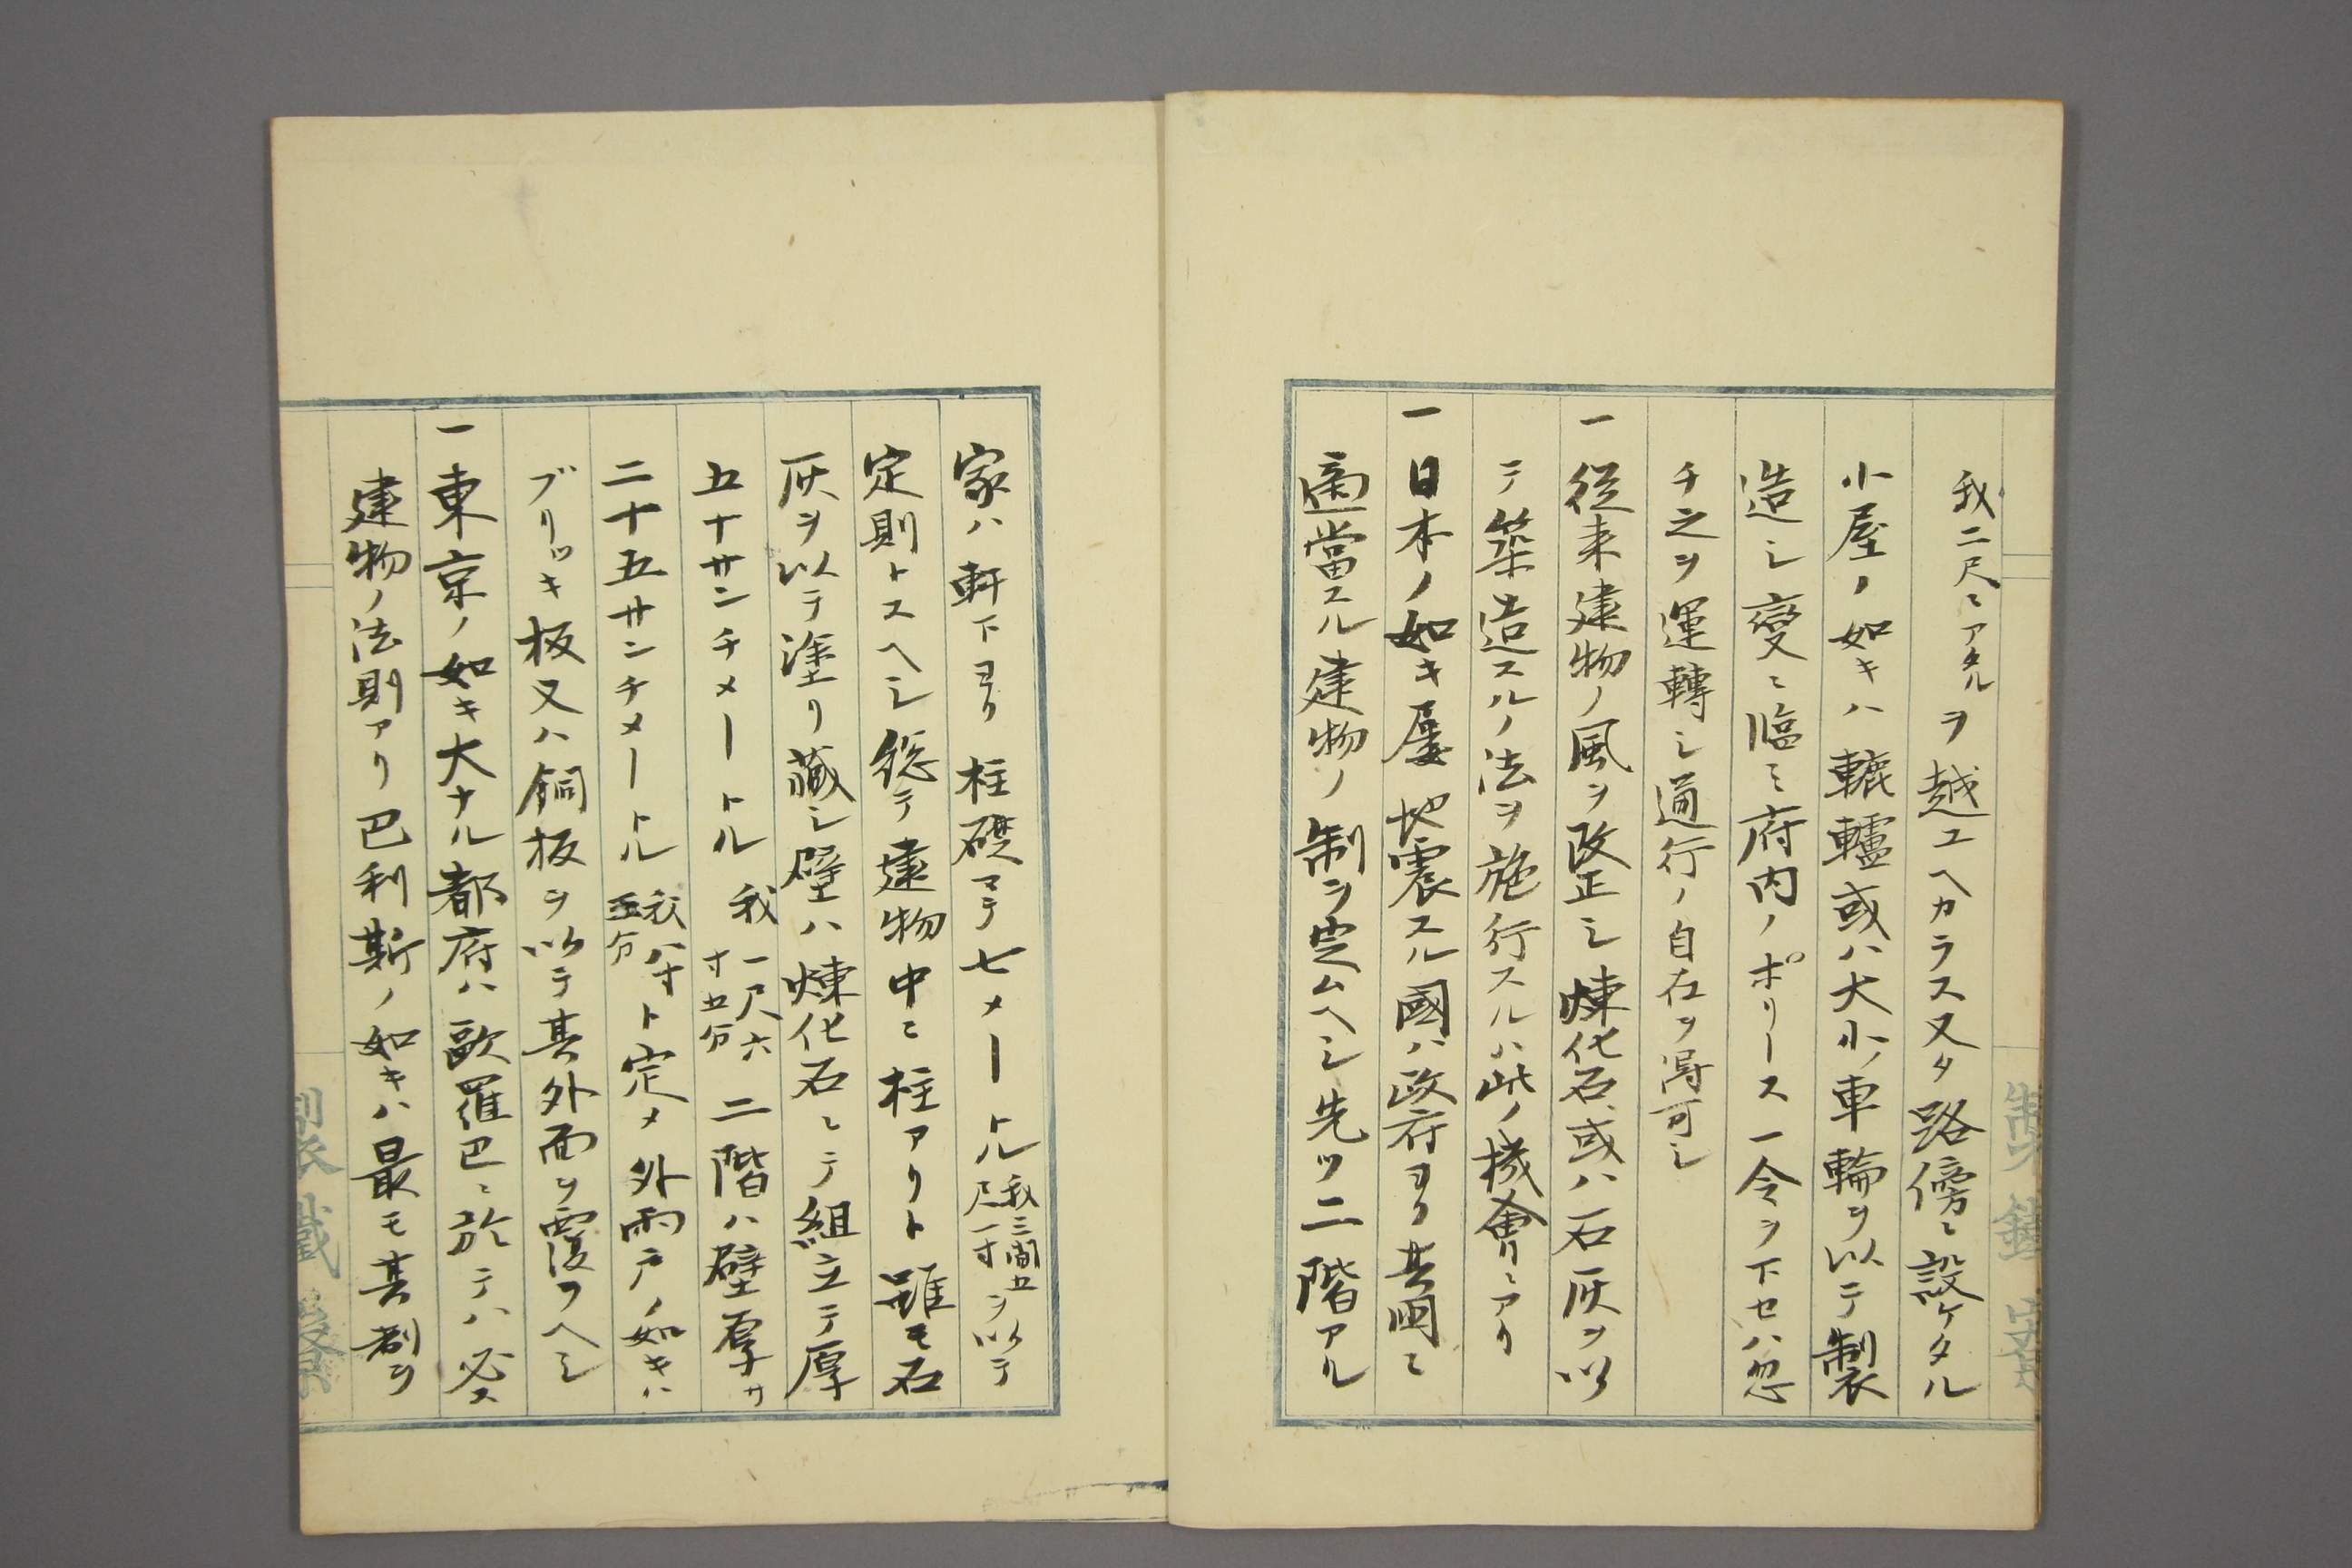 我二尺ニアタルヲ越ユヘカラス又タ路傍ニ設ケタル
小屋ノ如キハ轆轤或ハ大小ノ車輪ヲ以テ製
造シ變ニ臨ミ府内ノポリース一令ヲ下セハ忽
チ之ヲ運轉シ通行ノ自在ヲ得可シ
一従来建物ノ風ヲ改正シ煉化石或ハ石灰ヲ以
テ築造スルノ法ヲ施行スルハ此ノ機會ニアリ
一日本ノ如キ屡地震スル國ハ政府ヨリ其國ニ
適當スル建物ノ制ヲ定ムヘシ先ツ二階アル
家ハ軒下ヨリ柱礎マテ七メートル我三間五尺一寸ヲ以テ
定則トスヘシ総テ建物中ニ柱アリト雖モ石
灰ヲ以テ塗リ蔵シ壁ハ煉化石ニテ組立テ厚
五十サンチメートル我一尺六寸五分二階ハ壁厚サ
二十五サンチメートル我八寸五分ト定メ外雨戸ノ如キハ
ブリッキ板又ハ銅板ヲ以テ其外面ヲ覆フヘシ
一東京ノ如キ大ナル都府ハ歐羅巴ニ於テハ必ス
建物ノ法則アリ巴利斯ノ如キハ最モ其制ヲ